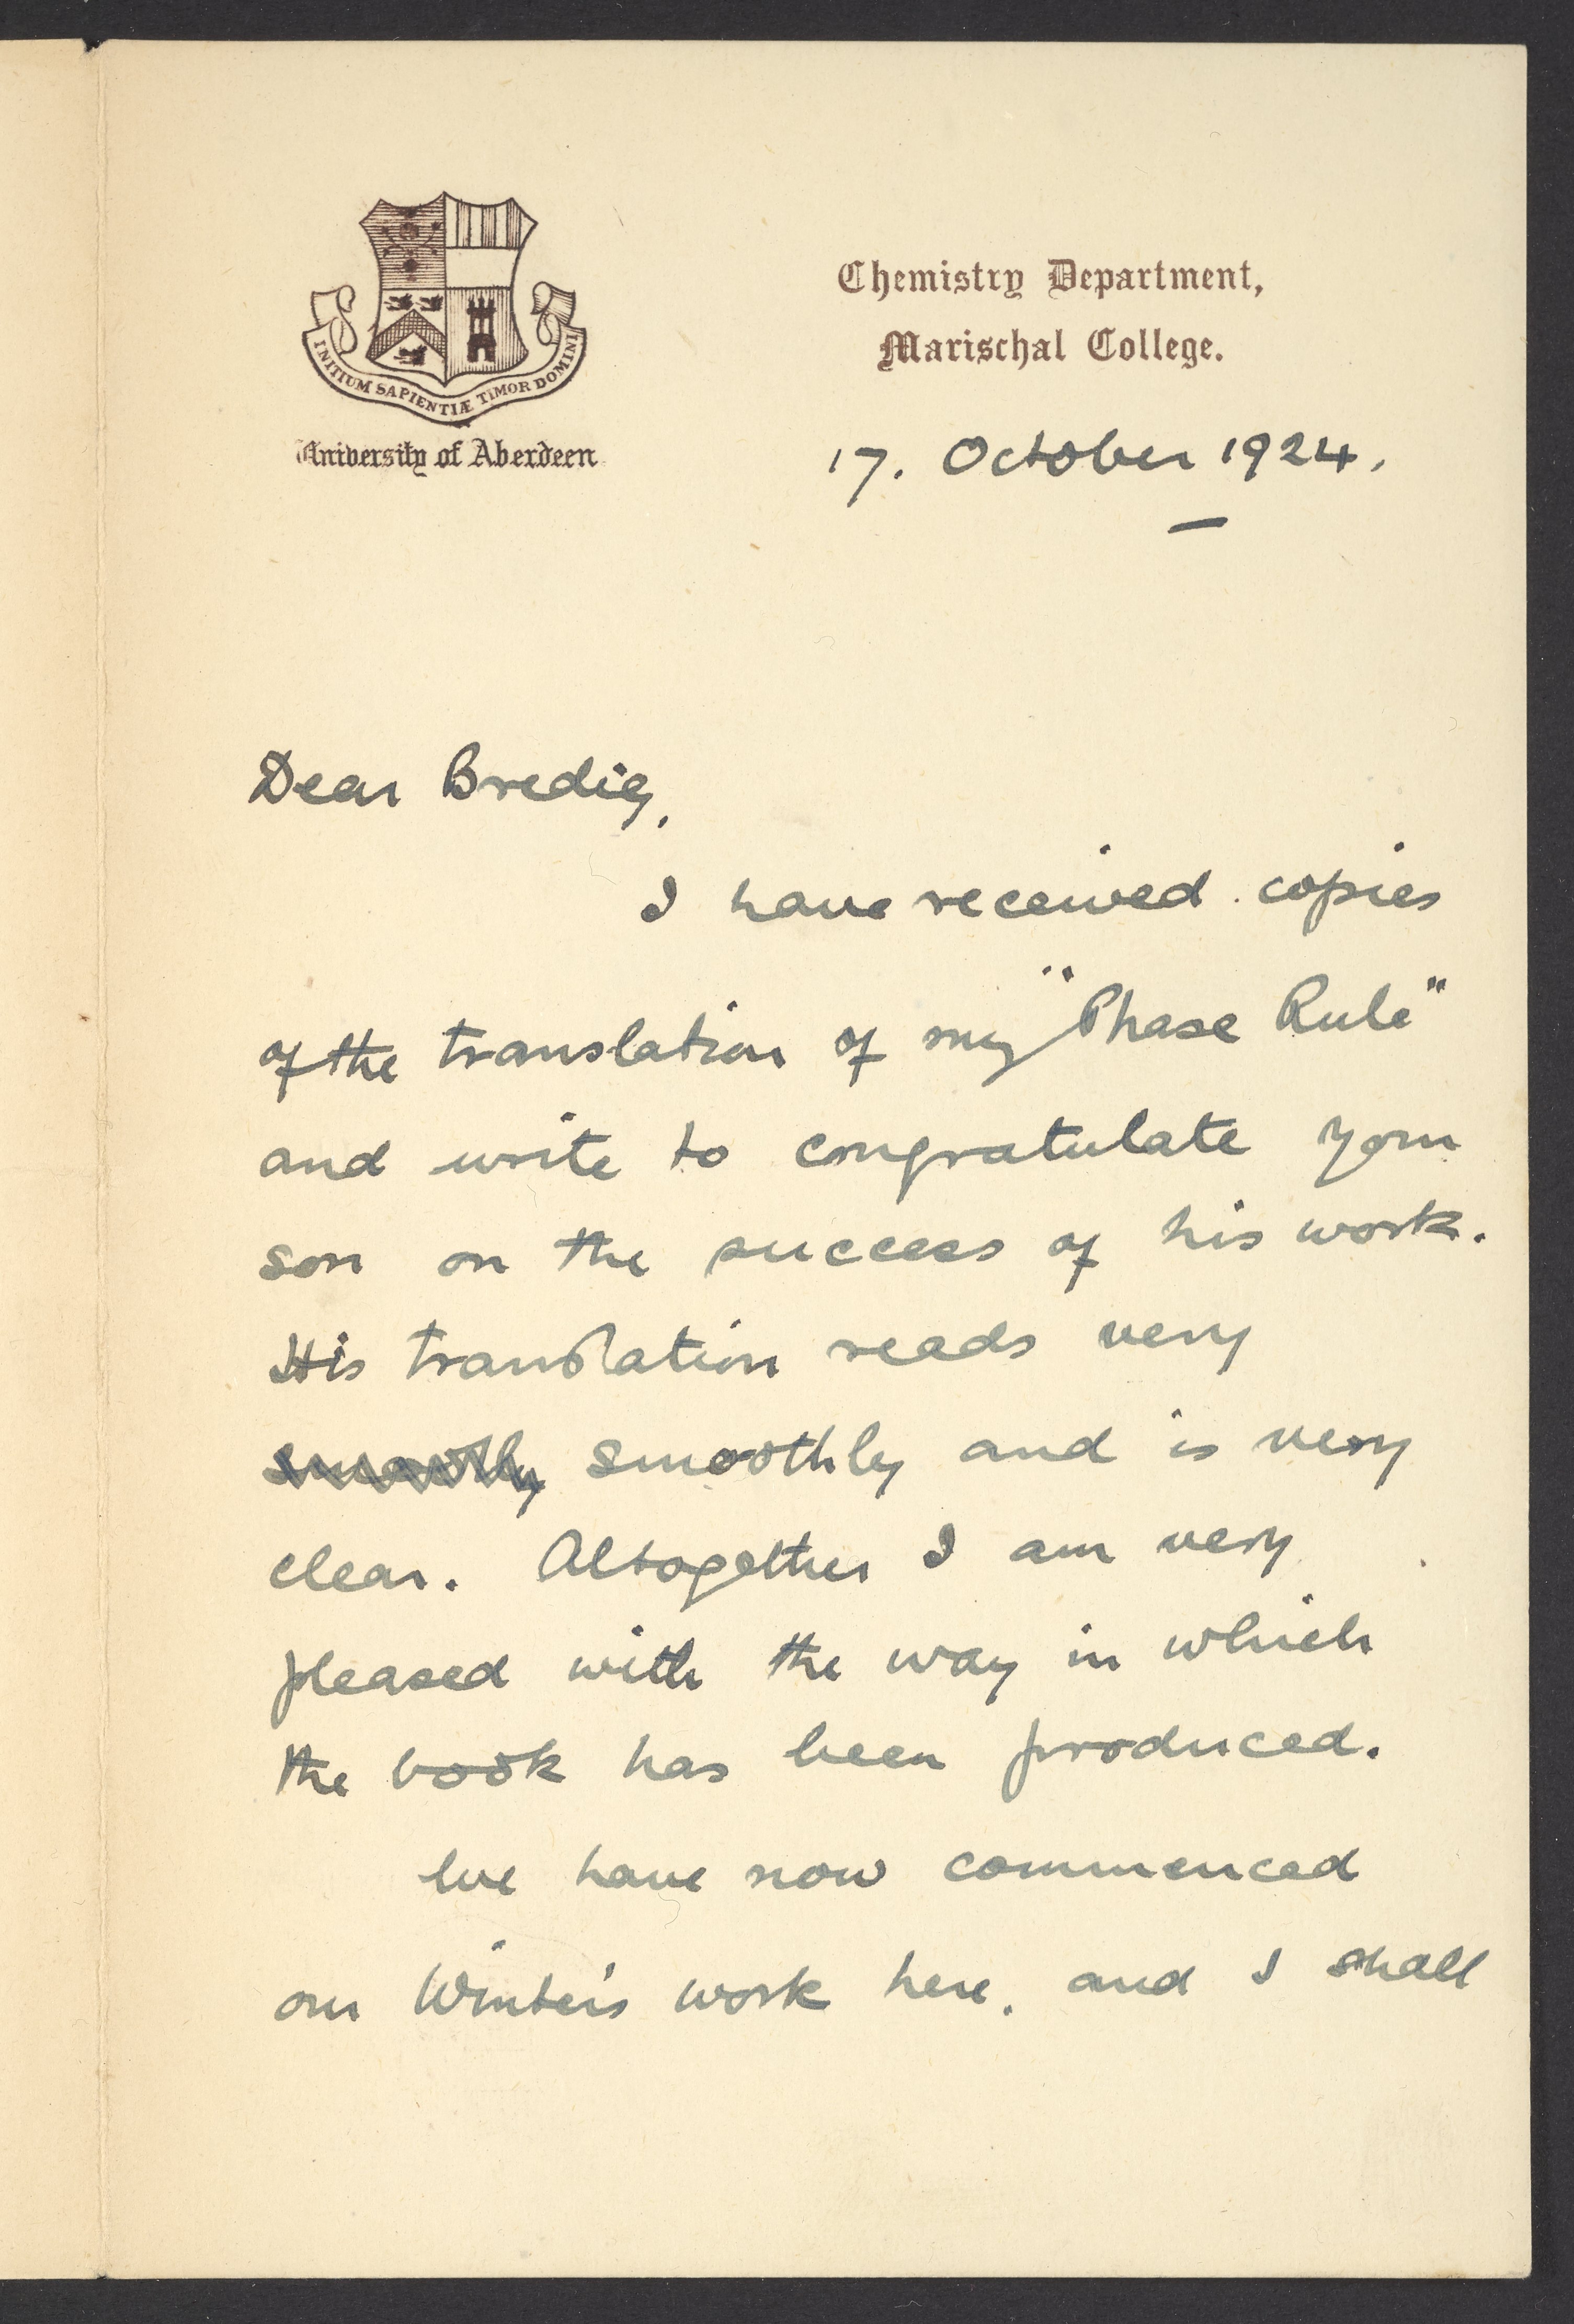 INITIUM SAPIENTIÆ TIMOR DOMINI
University of Aberdeen
Chemistry Department,
Marischal College.
17. October 1924.
Dear Bredig,
I have received copies
of the translation of my "Phase Rule"
and write to congratulate your
son on the success of his work.
His translation reads very
smoothly and is very
clear. Altogether I am very
pleased with the way in which
the book has been produced.
We have now commenced
our Winter's work here, and I shall